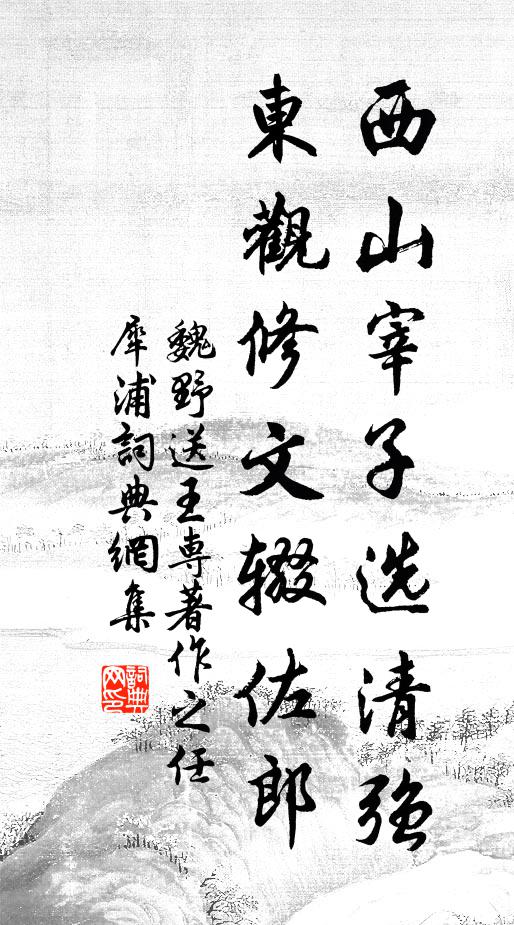 西山宰子选清強
東觀修文辍佐郎
魏野送王専著作之任
犀浦詞典網集
詞典网印